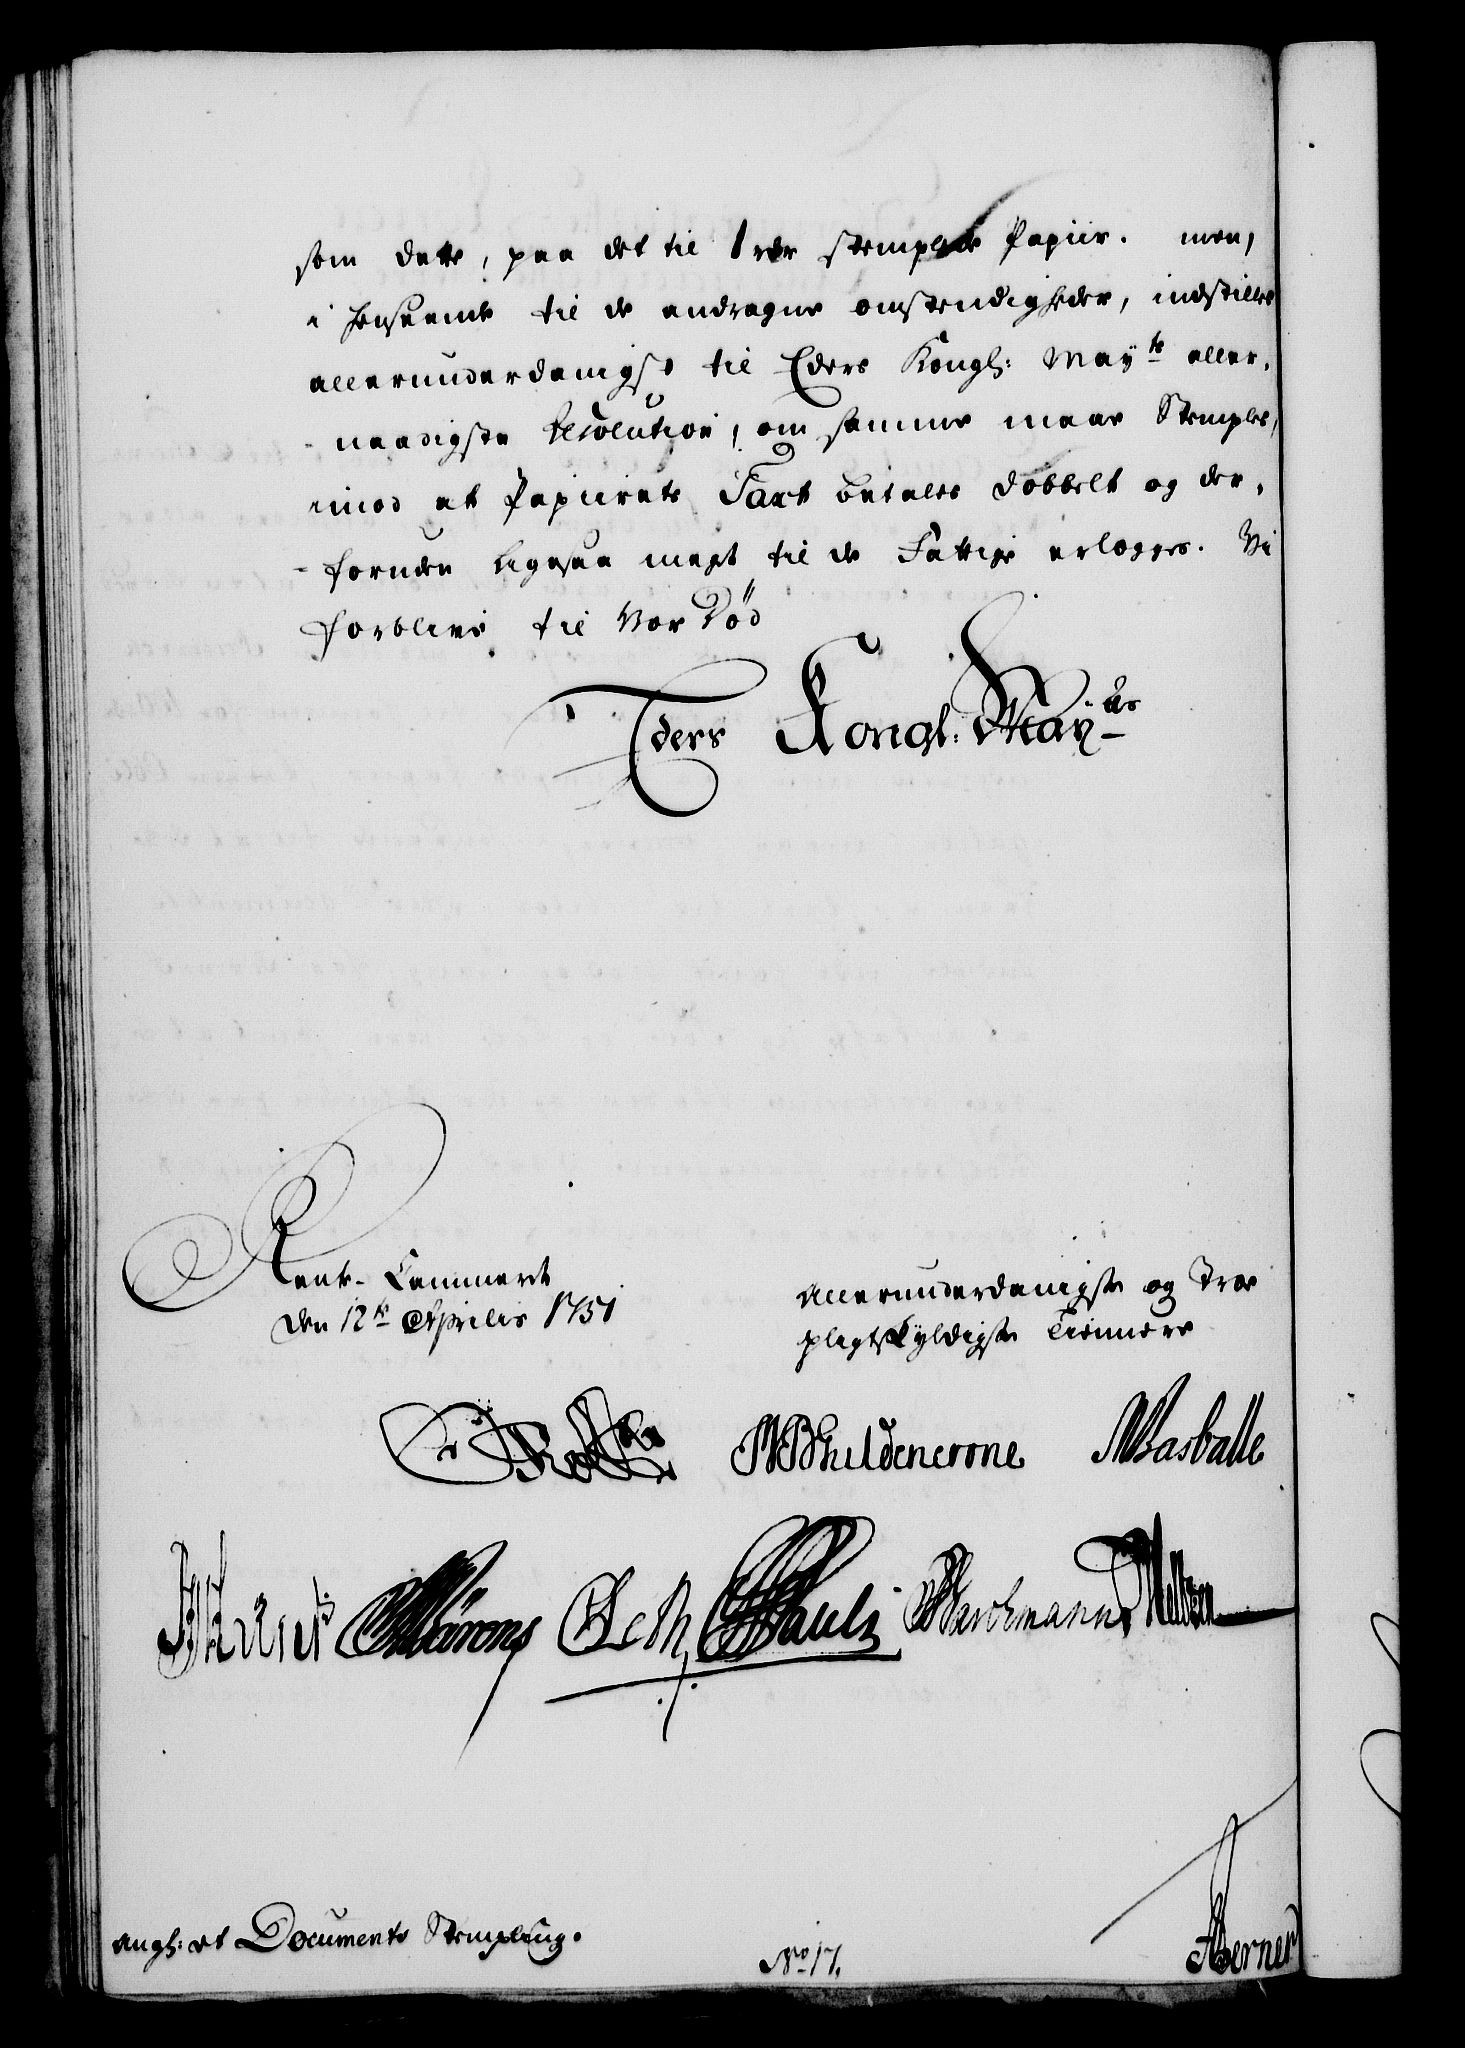 som dette, paa det til 1 rdr stemplede Papiir. men,
i henseende til de andragne omstendigheder, indstilles
allerunderdanigst til Eders Kongl: May.ts aller-
- naadigste Resolution, om samme maae Stemples,
imod at Papiirets Taxt betales dobbelt og der-
- foruden ligesaa meget til de Fattige erlegges. Vi
forblive til Vor Död
Eders Kongl: May.ts
Rente-Cammeret
den 12te Aprilis 1751
Allerunderdanigste og Troe
pligtskyldigste Tiennere
Holst
Gyldencrone
Basballe
Pauli
angl: et Documents Stempling.
No 17.